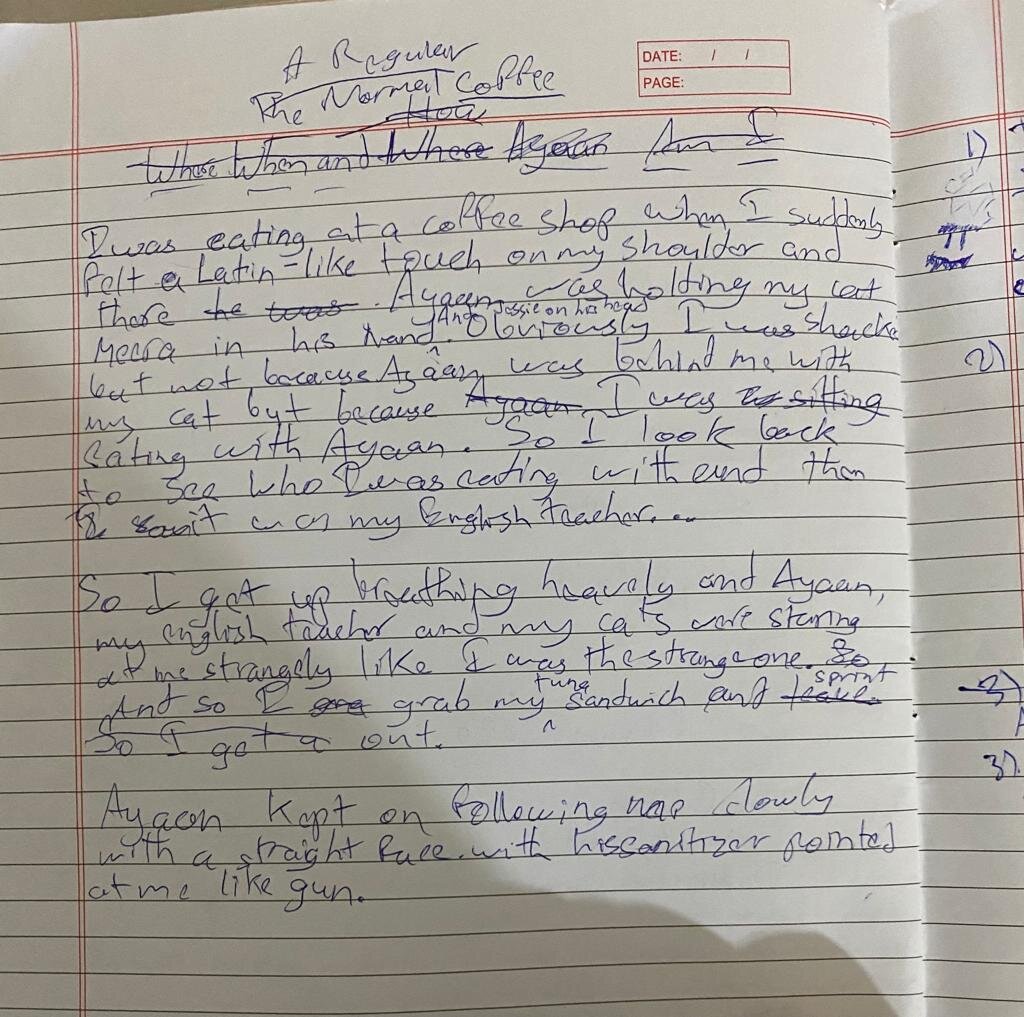 A Regular
The Normal Coffee
Hou
DATE: / /
PAGE:
Whose When and Where Ayaan Am I
I was eating at a coffee shop when I suddenly
felt a Latin-like touch on my shoulder and
there he was. Ayaan was holding my cat
Meera in his hand. And Jessie on his head Obviously I was shocke
but not because Ayaan was behind me with
my cat but because Ayaan I was sitting
eating with Ayaan. So I look back
to see who I was eating with and then
it was my English teacher...
So I got up breathing heavely and Ayaan,
my english teacher and my cats were staring
at me strangely like I was the strange one. So
And so I gra grab my tuna sandwich and leave. sprint
So I got a out.
Ayaan kept on following me slowly
with a straight face. with his sanitizer pointed
at me like gun.
1)
2)
3)
3).